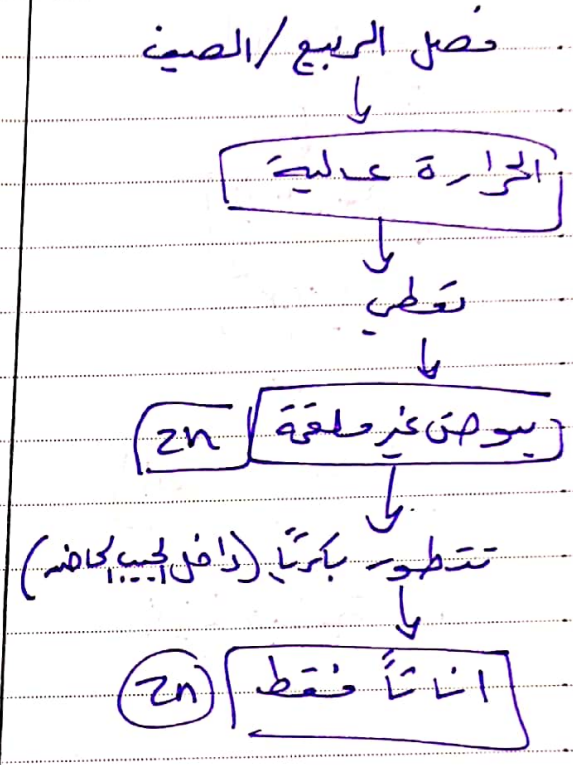 فصل الربيع / الصيف
الحرارة عالية
تعطي
بيوض غير ملقحة 2n
تتطور بكرياً (داخل الجيب الحاضن)
اناثاً فقط 2n